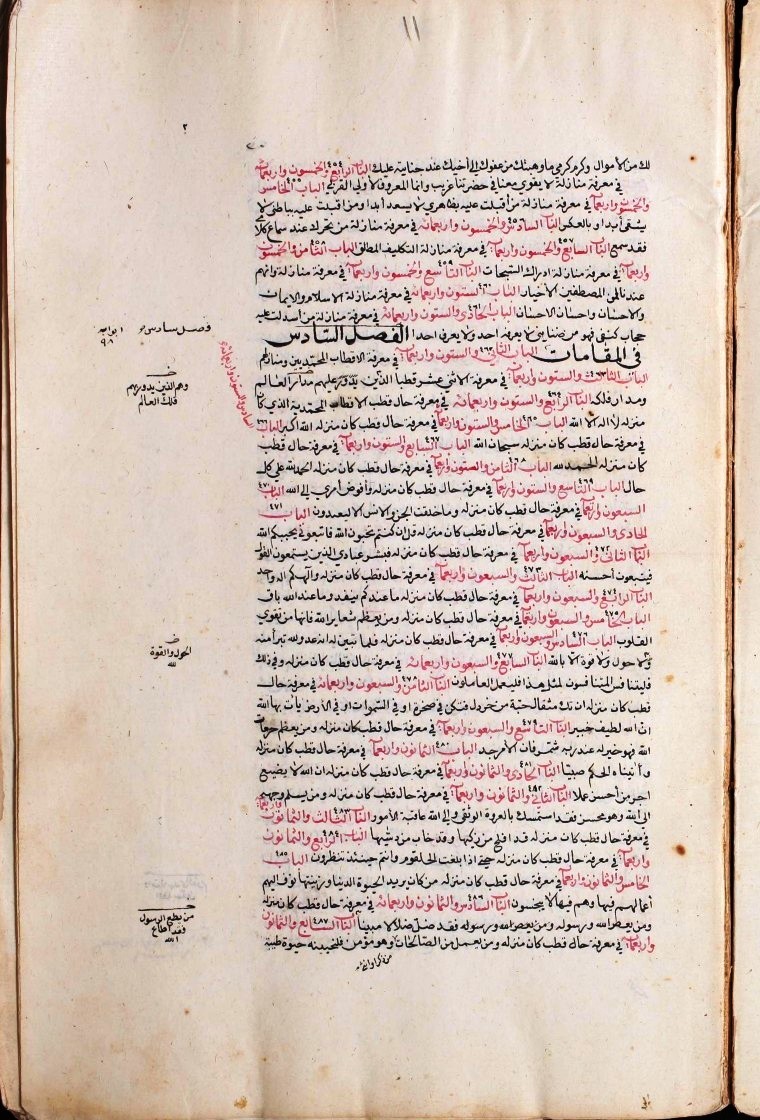 ١١
٢
لك من الأموال وكرم كرمي ما وهبتك من عفوك إلى أخيك عند جنايته عليك الباب الرابع ٤٥٤ والخمسون واربعمائة
في معرفة منازلة لا يقوى معنا في حضرتنا غريب وانما المعروف لأولي القربى الباب الخامس
والخمسون واربعمائة في معرفة منازلة من أقبلت عليه بظاهري لا يسعد أبدا ومن اقبلت عليه بباطني لا
يشقى أبدا وبالعكس الباب السادس والخمسون واربعمائة في معرفة منازلة من تحرك عند سماع كلامي
فقد سمع الباب السابع ٤٥٧ والخمسون واربعمائة في معرفة منازلة التكليف المطلق الباب الثامن ٤٥٨ والخمسون
واربعمائة في معرفة منازلة ادراك السبحات الباب التاسع ٤٥٩ والخمسون واربعمائة في معرفة منازلة وانهم
عندنا لمن المصطفين الأخيار الباب ٤٦٠ الستون واربعمائة في معرفة منازلة الاسلام والايمان
والاحسان واحسان الاحسان الباب الحادي ٤٦١ والستون واربعمائة في معرفة منازلة من أسدلت عليه
حجاب كنفي فهو من ضنائني لا يعرفه احد ولا يعرف احدا الفصل السادس
في المقامات الباب الثاني ٤٦٢ والستون واربعمائة في معرفة الاقطاب المحمديين ومنازلهم
الباب الثالث ٤٦٣ والستون واربعمائة في معرفة الاثني عشر قطبا الذين يدور عليهم مدار العالم
ومدار فلكه الباب الرابع ٤٦٤ والستون واربعمائة في معرفة حال قطب الاقطاب المحمدية الذي كان
منزله لا اله الا الله الباب الخامس ٤٦٥ والستون واربعمائة في معرفة حال قطب كان منزله الله أكبر الباب ٤٦٦
في معرفة حال قطب كان منزله سبحان الله الباب السابع ٤٦٧ والستون واربعمائة في معرفة حال قطب
كان منزله الحمد لله الباب الثامن ٤٦٨ والستون واربعمائة في معرفة حال قطب كان منزله الحمد لله على كل
حال الباب التاسع ٤٦٩ والستون واربعمائة في معرفة حال قطب كان منزله وأفوض أمري إلى الله الباب ٤٧٠
السبعون واربعمائة في معرفة حال قطب كان منزله وما خلقت الجن والانس الا ليعبدون الباب ٤٧١
الحادي والسبعون واربعمائة في معرفة حال قطب كان منزله قل ان كنتم تحبون الله فاتبعوني يحببكم الله
الباب الثاني ٤٧٢ والسبعون واربعمائة في معرفة حال قطب كان منزله فبشر عبادي الذين يستمعون القول
فيتبعون أحسنه الباب الثالث ٤٧٣ والسبعون واربعمائة في معرفة حال قطب كان منزله والهكم اله واحد
الباب الرابع ٤٧٤ والسبعون واربعمائة في معرفة حال قطب كان منزله ما عندكم ينفد وما عند الله باق
الباب الخامس ٤٧٥ والسبعون واربعمائة في معرفة حال قطب كان منزله ومن يعظم شعاير الله فانها من تقوى
القلوب الباب السادس ٤٧٦ والسبعون واربعمائة في معرفة حال قطب كان منزله فلما تبين له انه عدو لله تبرأ منه
ولا حول ولا قوة الا بالله الباب السابع ٤٧٧ والسبعون واربعمائة في معرفة حال قطب كان منزله وفي ذلك
فليتنافس المتنافسون لمثل هذا فليعمل العاملون الباب الثامن ٤٧٨ والسبعون واربعمائة في معرفة حال
قطب كان منزله ان تك مثقال حبة من خردل فتكن في صخرة او في السموات او في الأرض يأت بها الله
ان الله لطيف خبير الباب التاسع ٤٧٩ والسبعون واربعمائة في معرفة حال قطب كان منزله ومن يعظم حرمات
الله فهو خير له عند ربه الباب ٤٨٠ الثمانون واربعمائة في معرفة حال قطب كان منزله
وأتيناه الحكم صبيا الباب الحادي ٤٨١ والثمانون واربعمائة في معرفة حال قطب كان منزله ان الله لا يضيع
اجر من أحسن عملا الباب الثاني ٤٨٢ والثمانون واربعمائة في معرفة حال قطب كان منزله ومن يسلم وجهه
الى الله وهو محسن فقد استمسك بالعروة الوثقى والى الله عاقبة الأمور الباب الثالث ٤٨٣ والثمانون واربعمائة
في معرفة حال قطب كان منزله قد افلح من زكيها وقد خاب من دسيها الباب الرابع ٤٨٤ والثمانون
واربعمائة في معرفة حال قطب كان منزله حتى اذا بلغت الحلقوم وانتم حينئذ تنظرون الباب ٤٨٥
الخامس والثمانون واربعمائة في معرفة حال قطب كان منزله من كان يريد الحيوة الدنيا وزينتها نوف اليهم
أعمالهم فيها وهم فيها لا يبخسون الباب السادس ٤٨٦ والثمانون واربعمائة في معرفة حال قطب كان منزله
ومن يعص الله ورسوله ومن يعص الله ورسوله فقد ضل ضلالا مبينا الباب السابع ٤٨٧ والثمانون
واربعمائة في معرفة حال قطب كان منزله ومن يعمل من الصالحات وهو مؤمن فلنحيينه حيوة طيبة
من ذكر او انثى
السادس والستون واربعمائة
فصل سادس
ابوابه
٩٨
وهم الذين يدور بهم
فلك العالم
الحول والقوة
لله
من يطع الرسول
فقد أطاع
الله